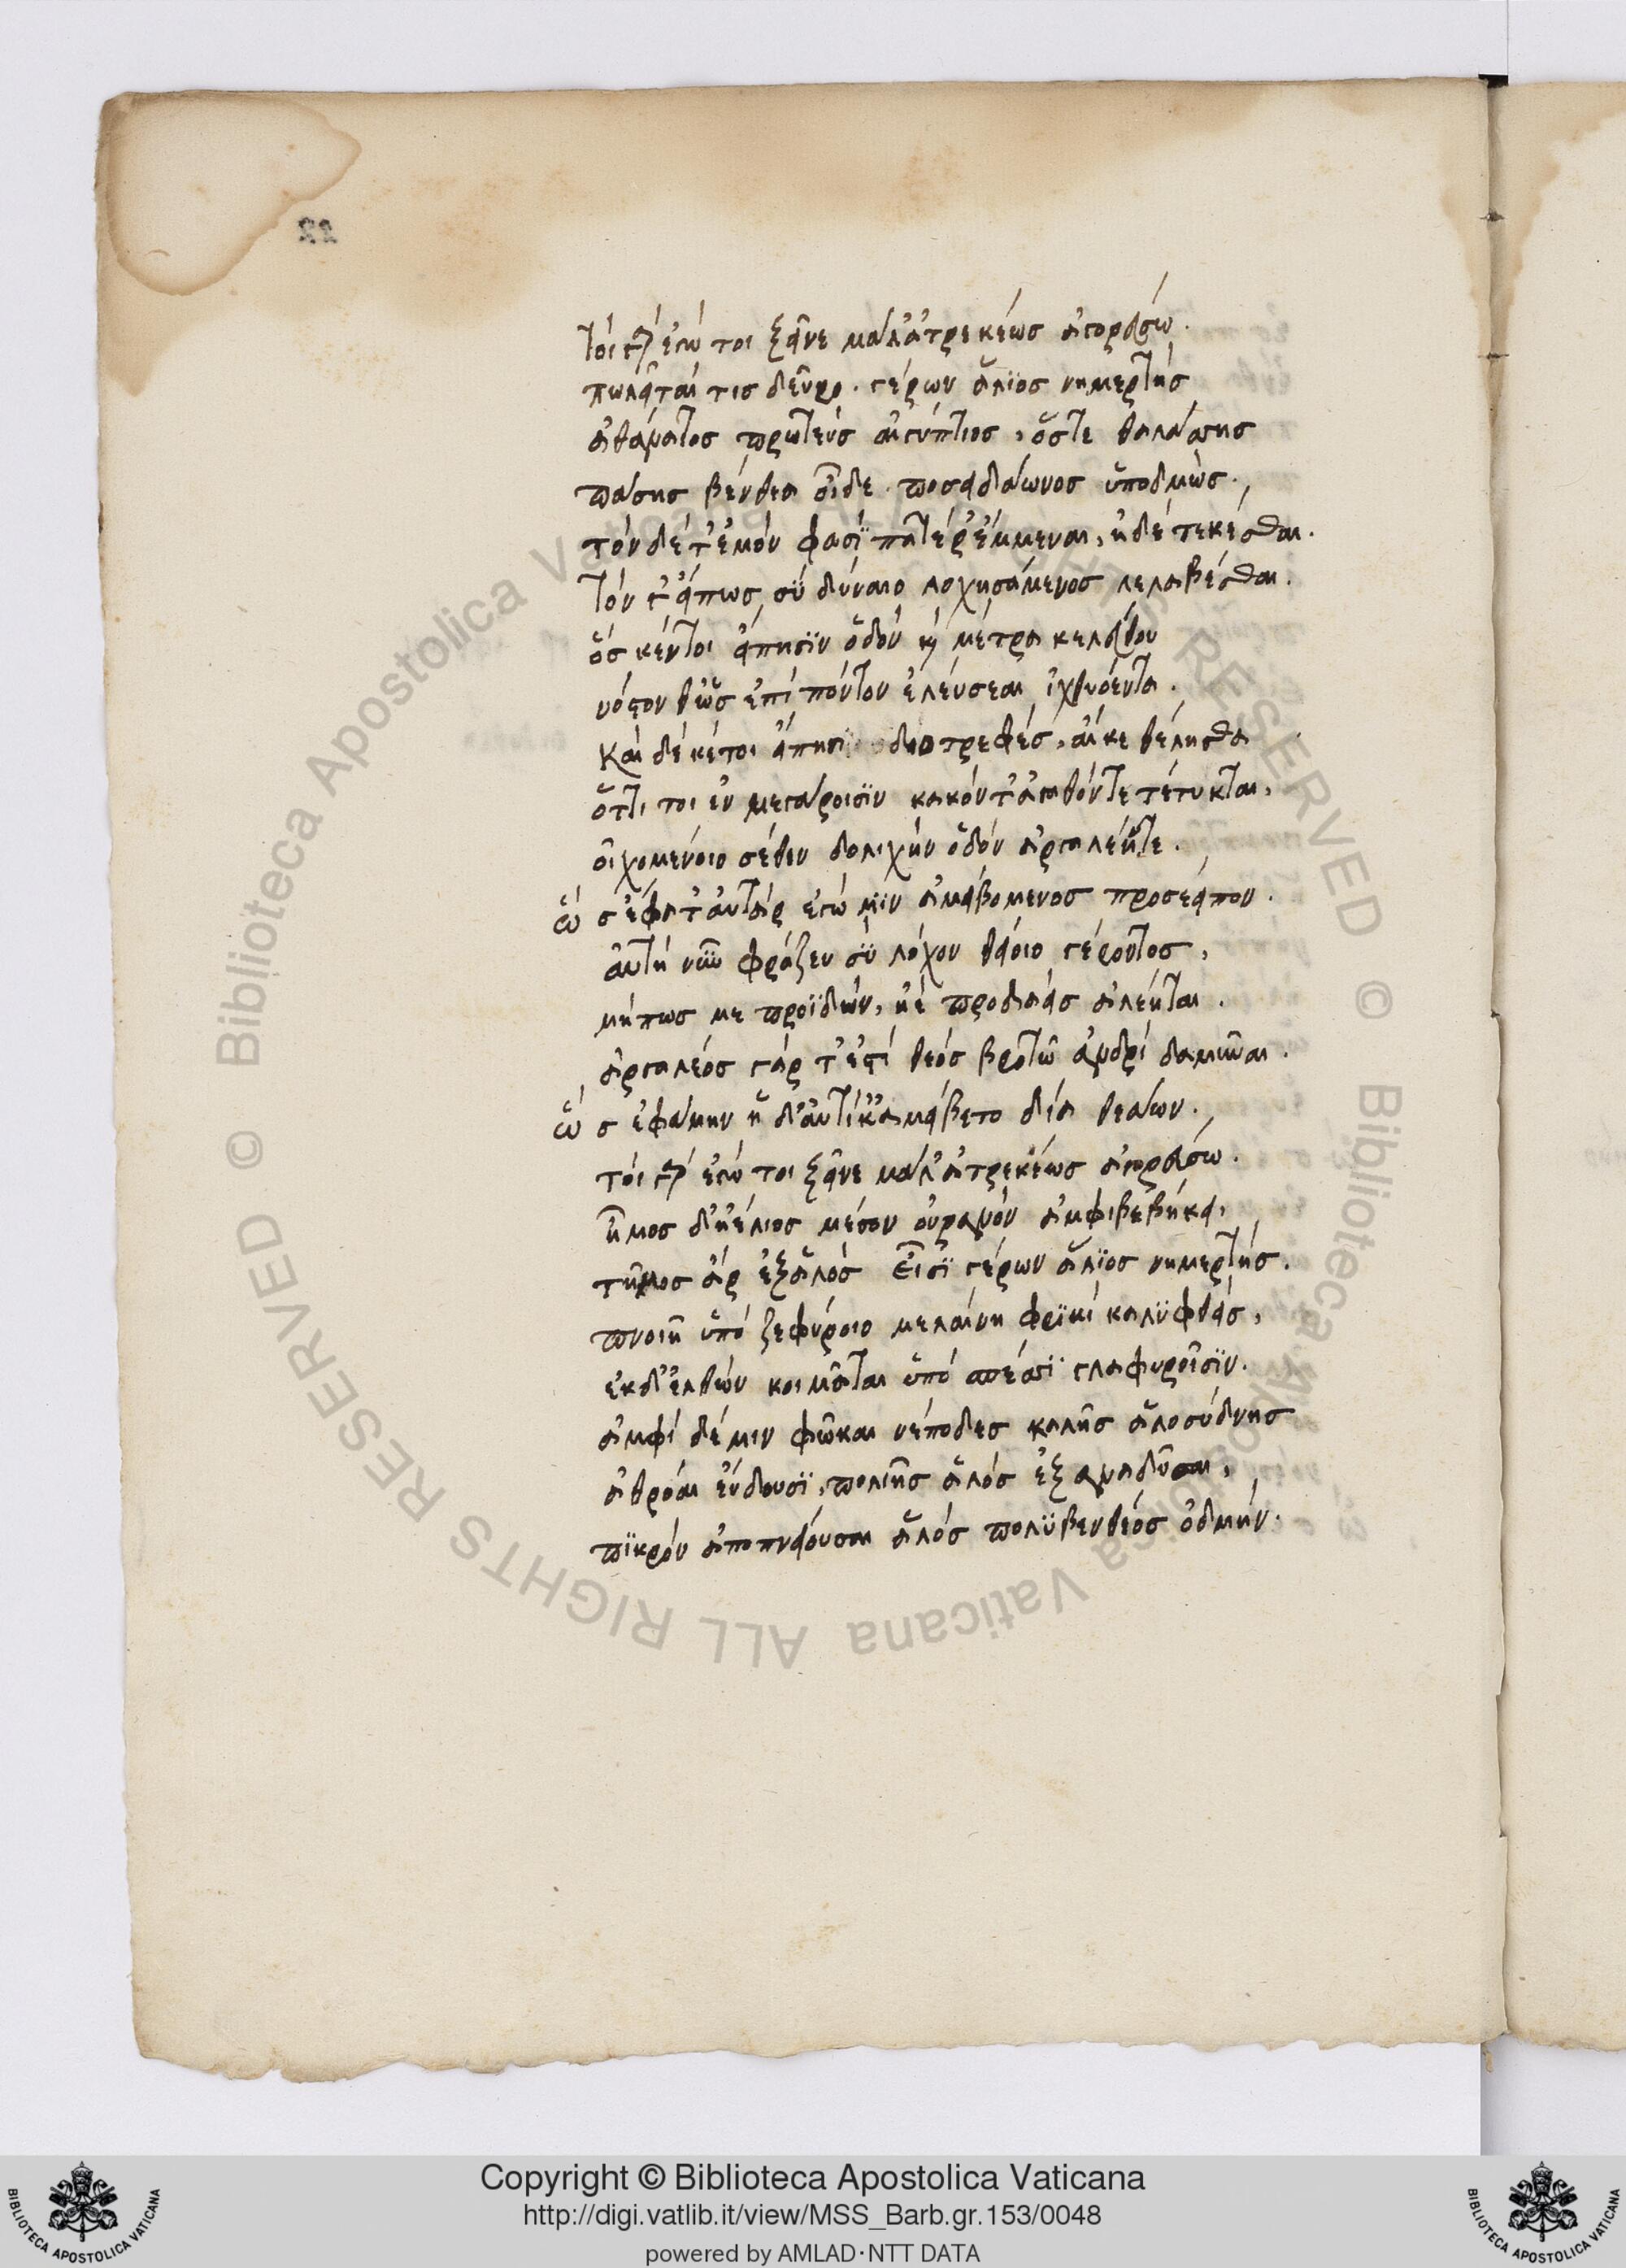 22
τοὶ γὰρ ἐγώ τοι ξεῖνε μάλ' ἀτρεκέως ἀγορεύσω.
πωλεῖταί τις δεῦρο. γέρων ἅλϊος νημερτὴς
ἀθάνατος πρωτεὺς αἰγύπτιος, ὅστε θαλάσσης
πάσης βένθεα οἶδε. ποσειδάωνος ὑποδμώς.
τὸν δέ τ' ἐμόν φασϊ πατέρ' ἔμμεναι, ἠδὲ τεκέσθαι.
τόν γ' εἴπως σὺ δύναιο λοχησάμενος λελαβέσθαι.
ὅς κέν τοι εἴπησϊν ὁδὸν καὶ μέτρα κελεύθου
νόστον θ' ὡς ἐπὶ πόντον ἐλεύσεαι ἰχθυόεντα.
Καὶ δέ κέ τοι εἴπησϊ διοτρεφές, αἴκε θέλησθα
ὅττι τοι ἐν μεγάροισϊν κακόν τ' ἀγαθόν τε τέτυκται,
οἰχομένοιο σέθεν δολιχὴν ὁδὸν ἀργαλέην τε.
ὣ ς ἔφατ' αὐτὰρ ἐγώ μϊν ἀμειβόμενος προσέειπον.
αὐτὴ νῦν φράζευ σὺ λόχον θείοιο γέροντος,
μήπως με προϊδὼν, ἠὲ προδαεὶς ἀλέηται.
ἀργαλέος γάρ τ' ἐστὶ θεὸς βροτῷ ἀνδρὶ δαμῆναι.
ὣ ς ἐφάμην ἡ δ' αὐτίκ' ἀμείβετο δῖα θεάων.
τοὶ γὰρ ἐγώ τοι ξεῖνε μάλ' ἀτρεκέως ἀγορεύσω.
ἦμος δ' ἠέλιος μέσον οὐρανὸν ἀμφιβεβήκει,
τῆμος ἄρ' ἐξ ἁλὸς εἶσϊ γέρων ἅλϊος νημερτής.
πνοιῇ ὑπὸ ζεφύροιο μελαίνῃ φρϊκὶ καλϋφθείς,
ἐκ δ' ἐλθὼν κοιμᾶται ὑπὸ σπέσσϊ γλαφυροῖσϊν.
ἀμφὶ δέ μιν φῶκαι νέποδες καλῆς ἁλοσύδνης
ἀθρόαι εὕδουσϊ, πολιῆς ἁλὸς ἐξαναδῦσαι,
πϊκρὸν ἀποπνείουσαι ἁλὸς πολϋβενθέος ὀδμήν.
Copyright © Biblioteca Apostolica Vaticana
http://digi.vatlib.it/view/MSS_Barb.gr.153/0048
powered by AMLAD·NTT DATA
BIBLIOTECA APOSTOLICA VATICANA
BIBLIOTECA APOSTOLICA VATICANA
© Biblioteca Apostolica Vaticana ALL RIGHTS RESERVED
© Biblioteca Apostolica Vaticana ALL RIGHTS RESERVED